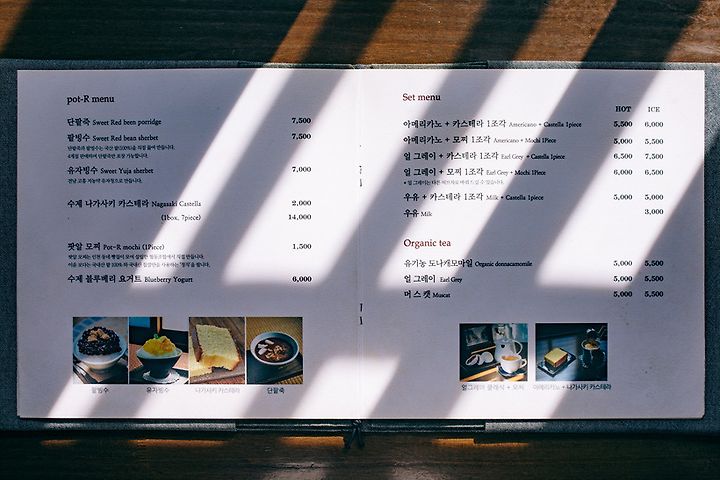 pot-R menu
단팥죽 Sweet Red bean porridge 7,500
팥빙수 Sweet Red bean sherbet 7,500
유자빙수 Sweet Yuja sherbet 7,000
수제 나가사키 카스테라 Nagasaki Castella 2,000
(1box, 7piece) 14,000
팟알 모찌 Pot-R mochi (1Piece) 1,500
수제 블루베리 요거트 Blueberry Yogurt 6,000
팥빙수 유자빙수 나가사키 카스테라 단팥죽
Set menu
HOT ICE
아메리카노 + 카스테라 1조각 Americano + Castella 1piece 5,500 6,000
아메리카노 + 모찌 1조각 Americano + Mochi 1Piece 5,000 5,500
얼 그레이 + 카스테라 1조각 Earl Grey + Castella 1piece 6,500 7,500
얼 그레이 + 모찌 1조각 Earl Grey + Mochi 1Piece 6,000 6,500
우유 + 카스테라 1조각 Milk + Castella 1piece 5,000 5,000
우유 Milk 3,000
Organic tea
유기농 도나캐모마일 Organic donnacamomile 5,000 5,500
얼 그레이 Earl Grey 5,000 5,500
머스캣 Muscat 5,000 5,500
얼그레이 클래식 + 모찌 아메리카노 + 나가사키 카스테라